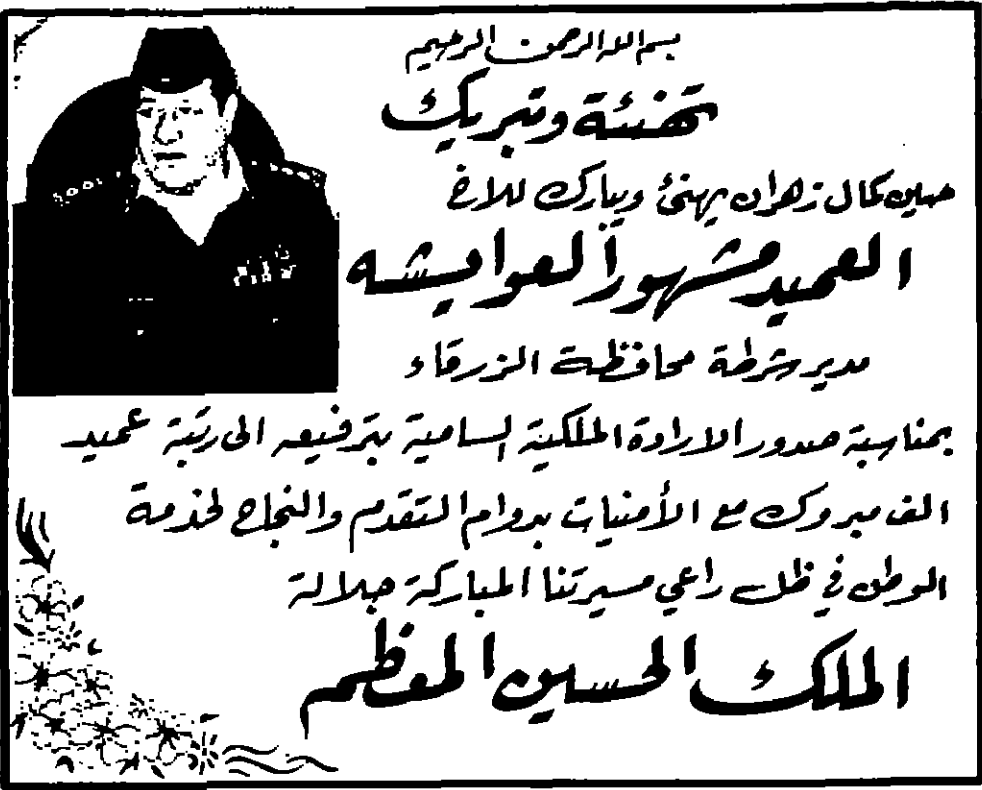 بسم الله الرحمن الرحيم
تهنئة وتبريك
حسين كمال زهران يهنئ ويبارك للأخ
العميد مشهور العوايشه
مدير شرطة محافظة الزرقاء
بمناسبة صدور الارادة الملكية السامية بترفيعه الى رتبة عميد
الف مبروك مع الأمنيات بدوام التقدم والنجاح لخدمة
الوطن في ظل راعي مسيرتنا المباركة جلالة
الملك الحسين المعظم